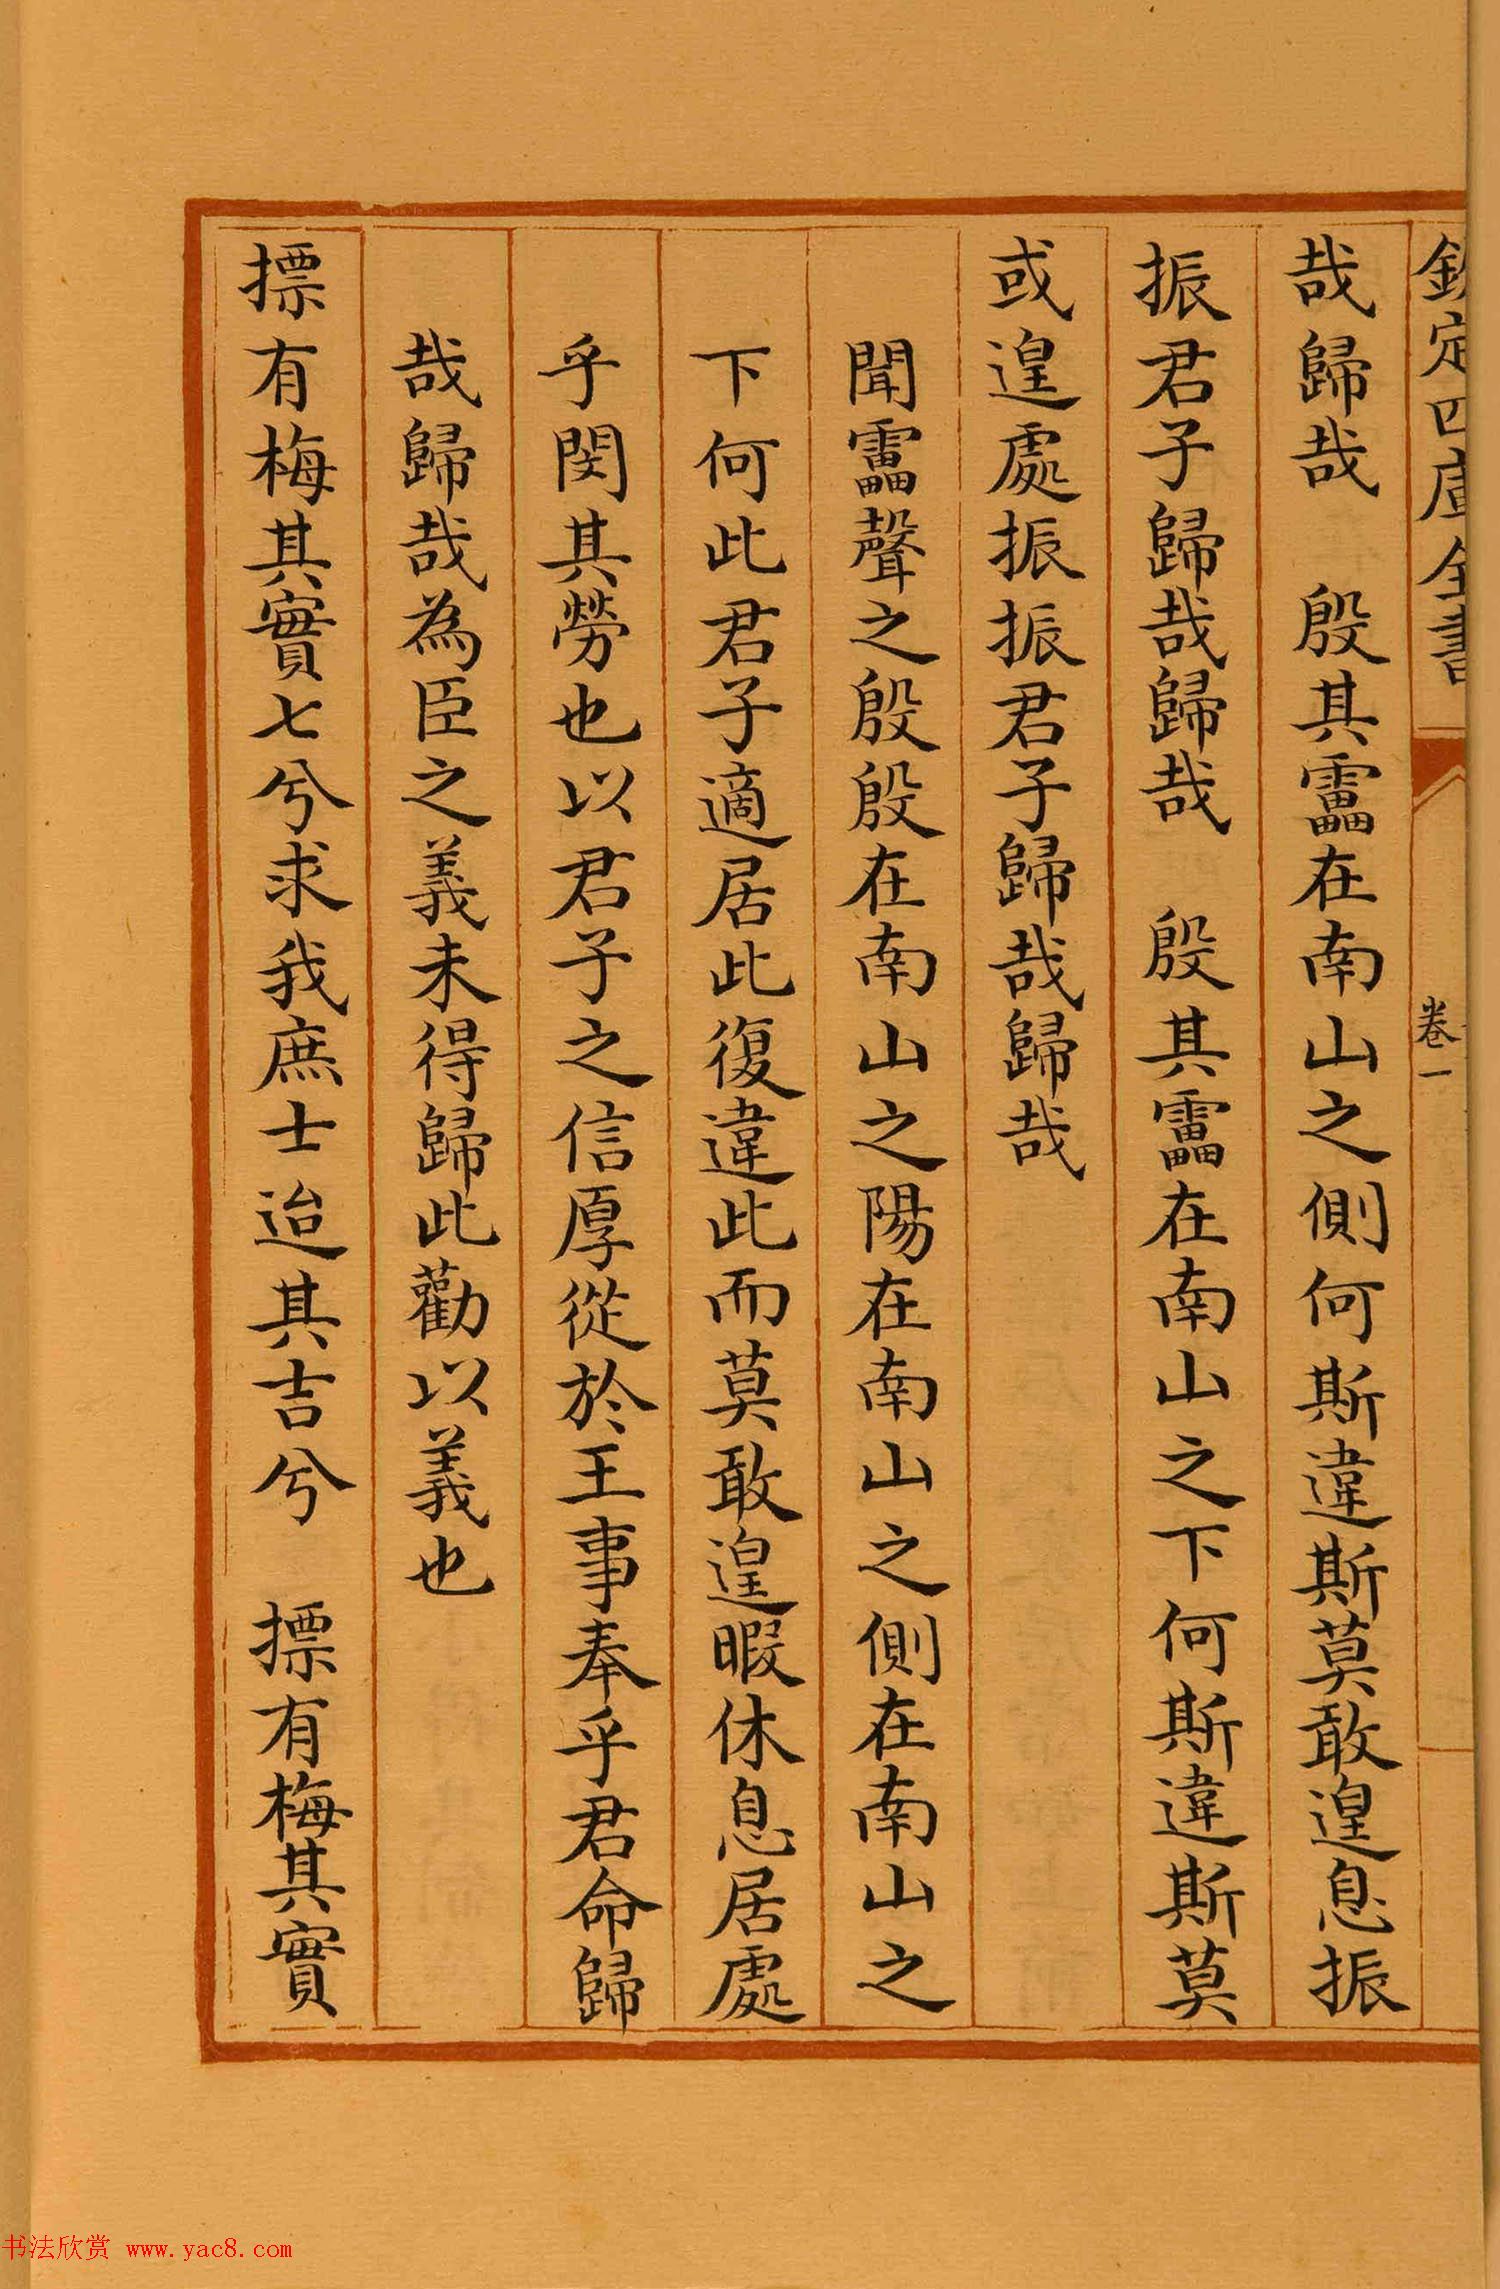 欽定四庫全書
卷一
哉歸哉　殷其靁在南山之側何斯違斯莫敢遑息振
振君子歸哉歸哉　殷其靁在南山之下何斯違斯莫
或遑處振振君子歸哉歸哉
聞靁聲之殷殷在南山之陽在南山之側在南山之
下何此君子適居此復違此而莫敢遑暇休息居處
乎閔其勞也以君子之信厚從於王事奉乎君命歸
哉歸哉為臣之義未得歸此勸以義也
摽有梅其實七兮求我庶士迨其吉兮　摽有梅其實
书法欣赏 www.yac8.com